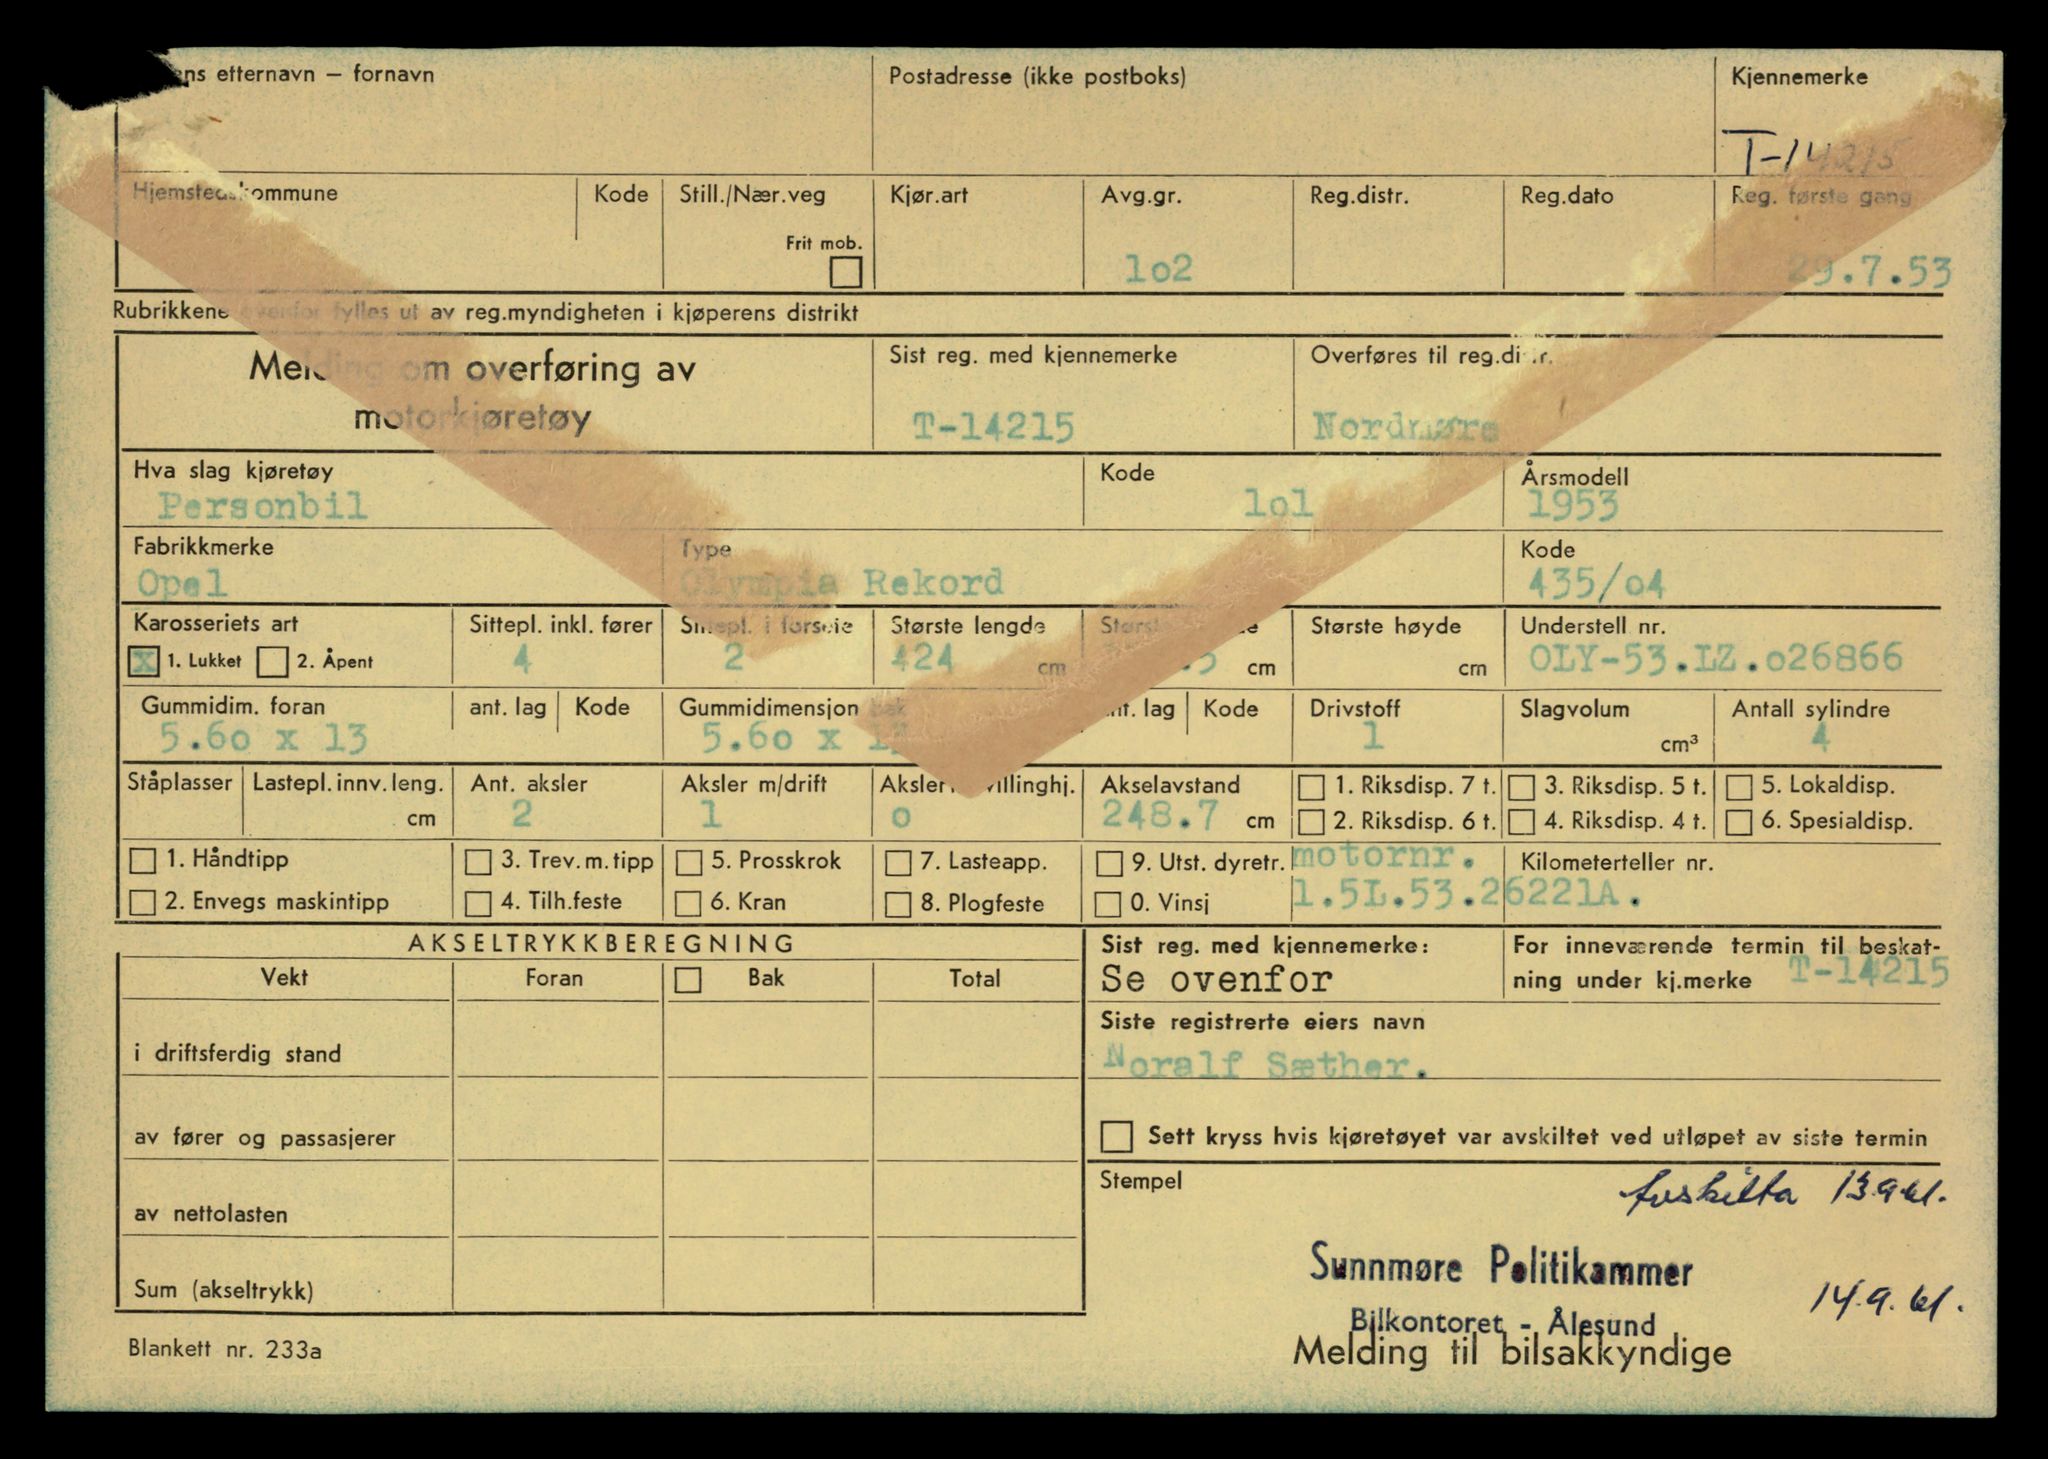 ens etternavn – fornavn Postadresse (ikke postboks) Kjennemerke
T-14215
Hjemstedskommune Kode Still./Nær.veg Kjør.art Avg.gr. Reg.distr. Reg.dato Reg. første gang
Frit mob.
1o2 29.7.53
Rubrikkene ovenfor fylles ut av reg.myndigheten i kjøperens distrikt
Melding om overføring av motorkjøretøy
Sist reg. med kjennemerke Overføres til reg.distr.
T-14215 Nordmøre
Hva slag kjøretøy Kode Årsmodell
Personbil 1o1 1953
Fabrikkmerke Type Kode
Opel Olympia Rekord 435/o4
Karosseriets art Sittepl. inkl. fører Sittepl. i forsete Største lengde Største høyde Understell nr.
x 1. Lukket 2. Åpent 4 2 424 cm cm cm OLY-53.LZ.o26866
Gummidim. foran ant. lag Kode Gummidimensjon bak ant. lag Kode Drivstoff Slagvolum Antall sylindre
5.6o x 13 5.6o x 13 1 cm³ 4
Ståplasser Lastepl. innv. leng. Ant. aksler Aksler m/drift Aksler tvillinghj. Akselavstand 1. Riksdisp. 7 t. 3. Riksdisp. 5 t. 5. Lokaldisp.
cm 2 1 o 248.7 cm 2. Riksdisp. 6 t. 4. Riksdisp. 4 t. 6. Spesialdisp.
1. Håndtipp 3. Trev.m.tipp 5. Prosskrok 7. Lasteapp. 9. Utst. dyretr. motornr. Kilometerteller nr.
2. Envegs maskintipp 4. Tilh.feste 6. Kran 8. Plogfeste 0. Vinsj 1.5L.53.26221A.
AKSELTRYKKBEREGNING
Vekt Foran Bak Total
i driftsferdig stand
av fører og passasjerer
av nettolasten
Sum (akseltrykk)
Blankett nr. 233a
Sist reg. med kjennemerke: For inneværende termin til beskat-
Se ovenfor ning under kj.merke T-14215
Siste registrerte eiers navn
Noralf Sæther.
Sett kryss hvis kjøretøyet var avskiltet ved utløpet av siste termin
Stempel
Avskilta 13.9.61.
Sunnmøre Politikammer
14.9.61.
Bilkontoret - Ålesund
Melding til bilsakkyndige